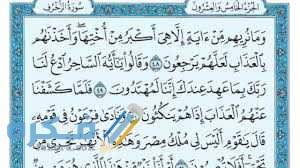 الجزء الخامس والعشرون سورة الزخرف
وَمَا نُرِيهِم مِّنْ ءَايَةٍ إِلَّا هِىَ أَكْبَرُ مِنْ أُخْتِهَا وَأَخَذْنَٰهُم
بِٱلْعَذَابِ لَعَلَّهُمْ يَرْجِعُونَ ٤٨ وَقَالُوا۟ يَٰٓأَيُّهَ ٱلسَّاحِرُ ٱدْعُ لَنَا
رَبَّكَ بِمَا عَهِدَ عِندَكَ إِنَّنَا لَمُهْتَدُونَ ٤٩ فَلَمَّا كَشَفْنَا
عَنْهُمُ ٱلْعَذَابَ إِذَا هُمْ يَنكُثُونَ ٥٠ وَنَادَىٰ فِرْعَوْنُ فِى قَوْمِهِۦ
قَالَ يَٰقَوْمِ أَلَيْسَ لِى مُلْكُ مِصْرَ وَهَٰذِهِ ٱلْأَنْهَٰرُ تَجْرِى مِن